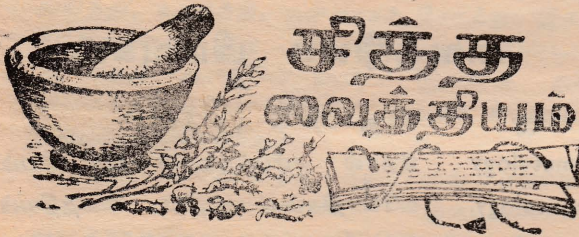 சித்த
வைத்தியம்